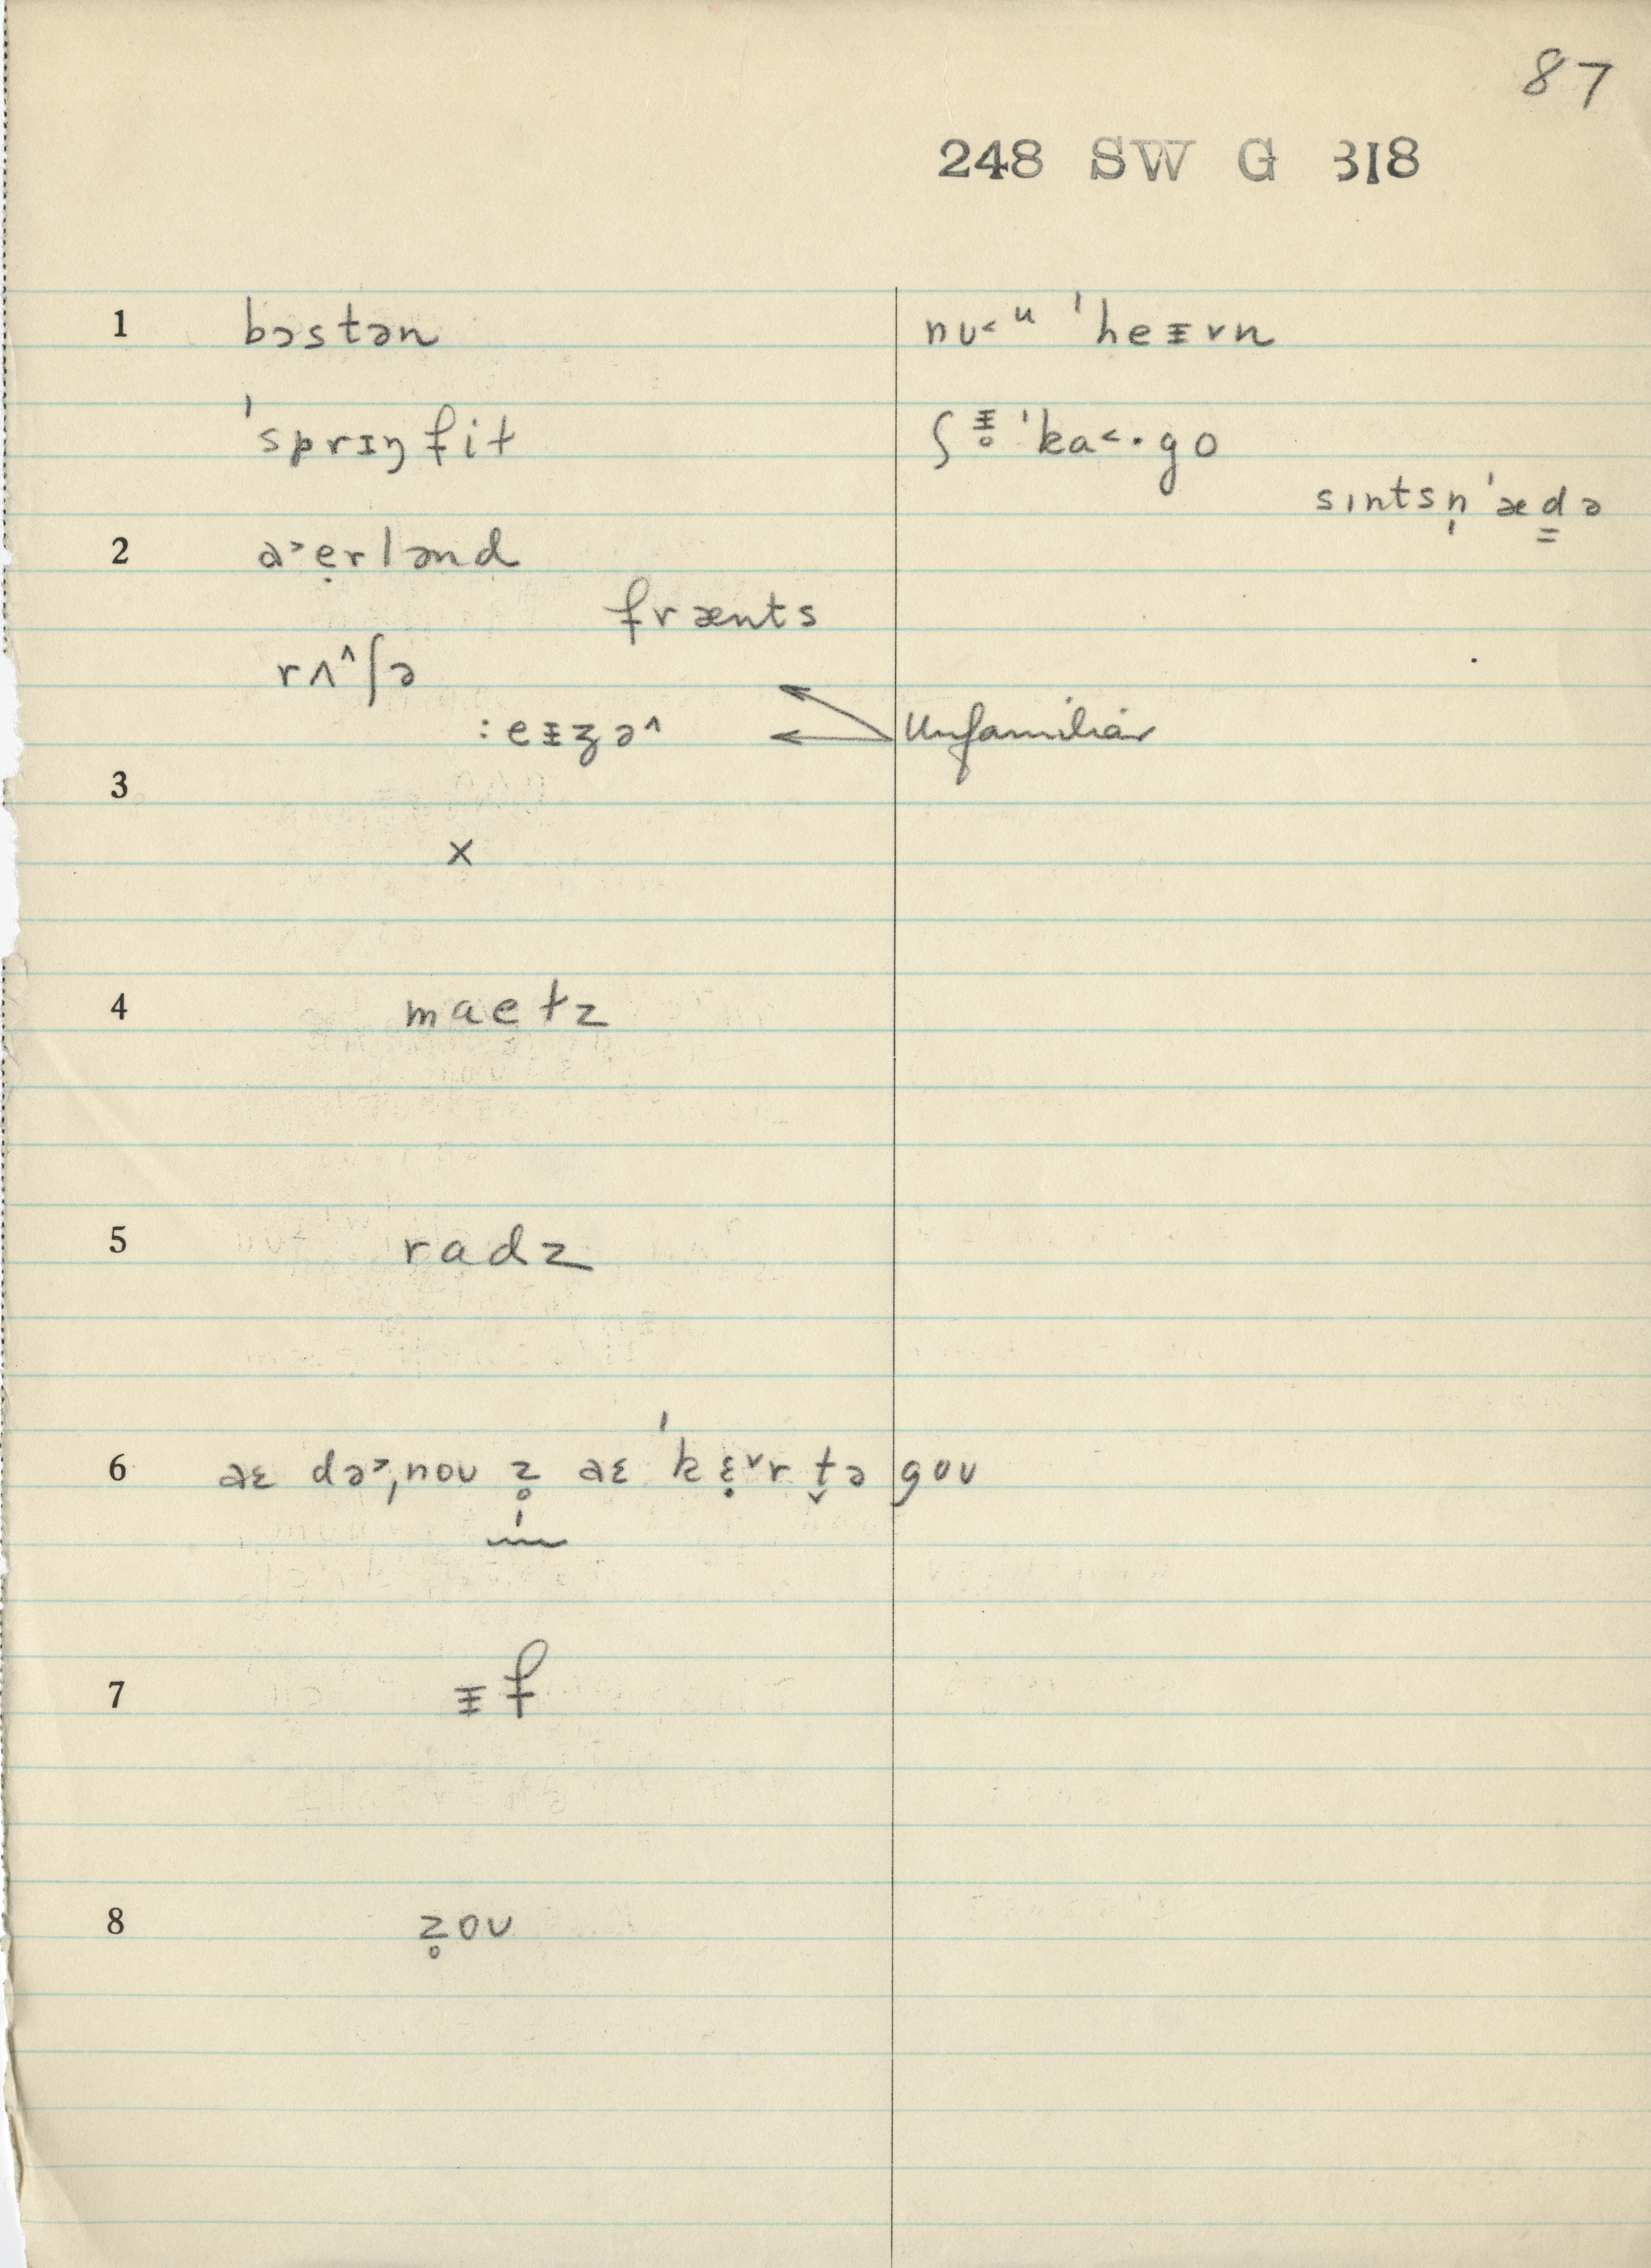 87
248 SW G 318
1 bɔstən nʊ˂ᵘ ˈheᵻvn
ˈsprɪŋfit ʃᵻ̥ ˈka˂·go
sɪntsn̩ ˈæd̳ə
2 a˃ẹrlənd
frænts
rʌ^ʃə
:eᵻʒə^ Unfamiliar
3
x
4 maetz
5 radz
6 aɛ də˃ˌnoʊ z̥ aɛ ˈkɛ̣˅r t̬ə goʊ
7 ᵻf
8 z̥oʊ